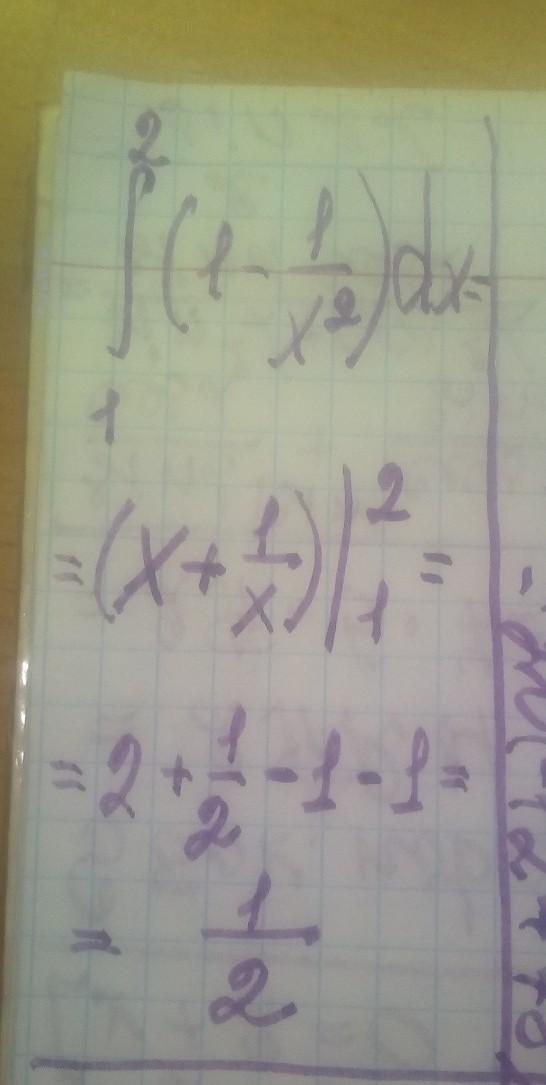 ∫₁² (1 - 1/x²) dx =
= (x + 1/x) |₁² =
= 2 + 1/2 - 1 - 1 =
= 1/2